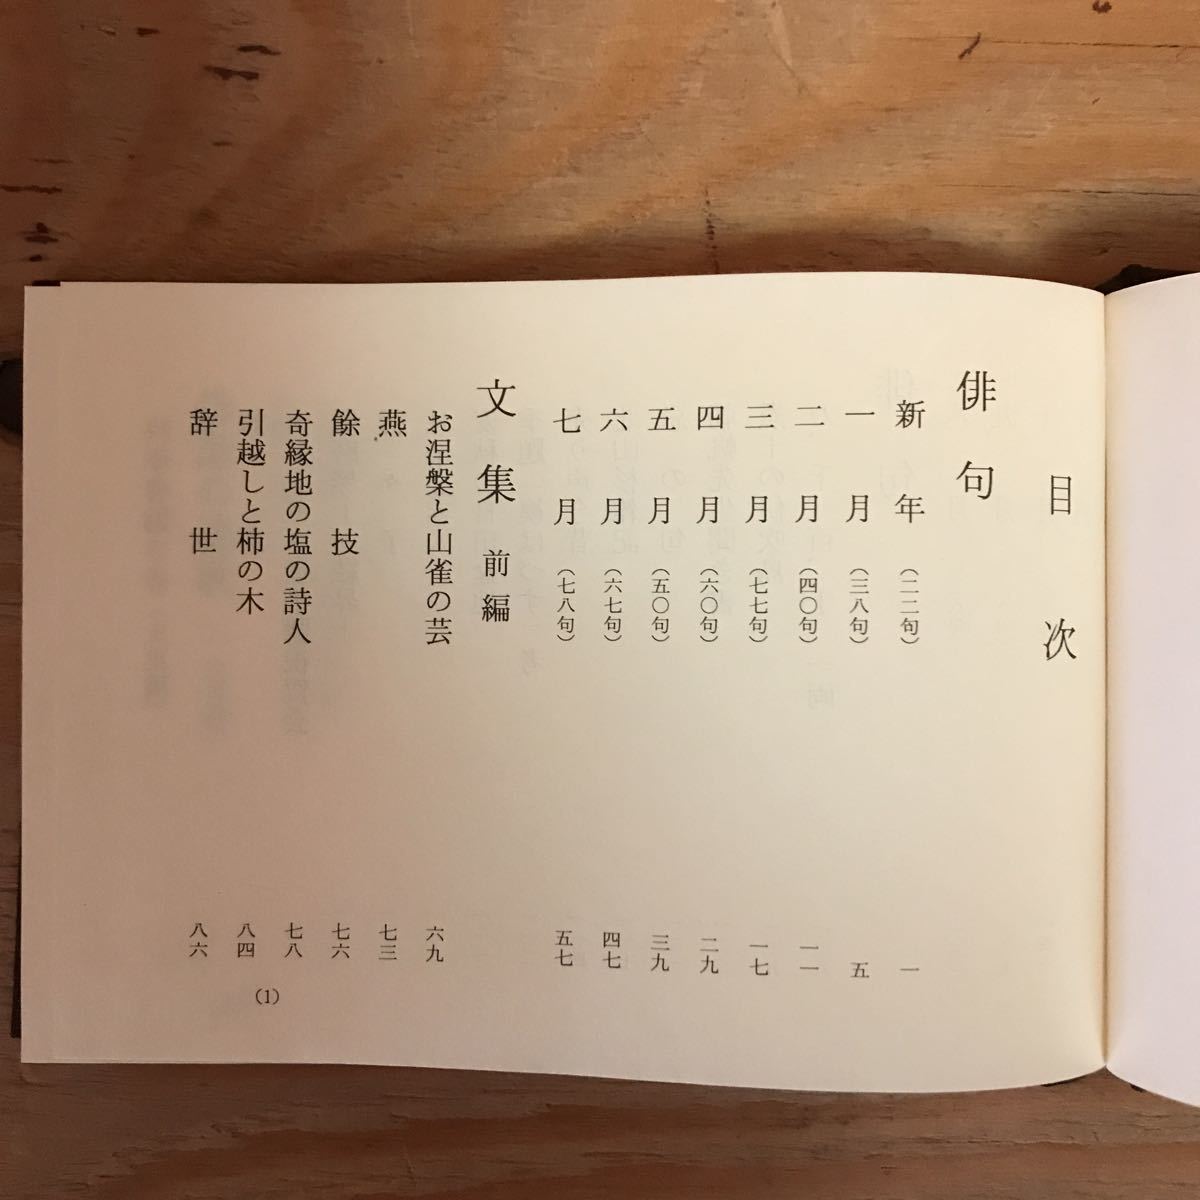 目次
俳句
新年（二二句） 一
一月（三八句） 五
二月（四〇句） 一一
三月（七七句） 一七
四月（六〇句） 二九
五月（五〇句） 三九
六月（六七句） 四七
七月（七八句） 五七
文集 前編
お涅槃と山雀の芸 六九
燕 七三
餘技 七六
奇縁地の塩の詩人 七八
引越しと柿の木 八四
辞世 八六
(1)